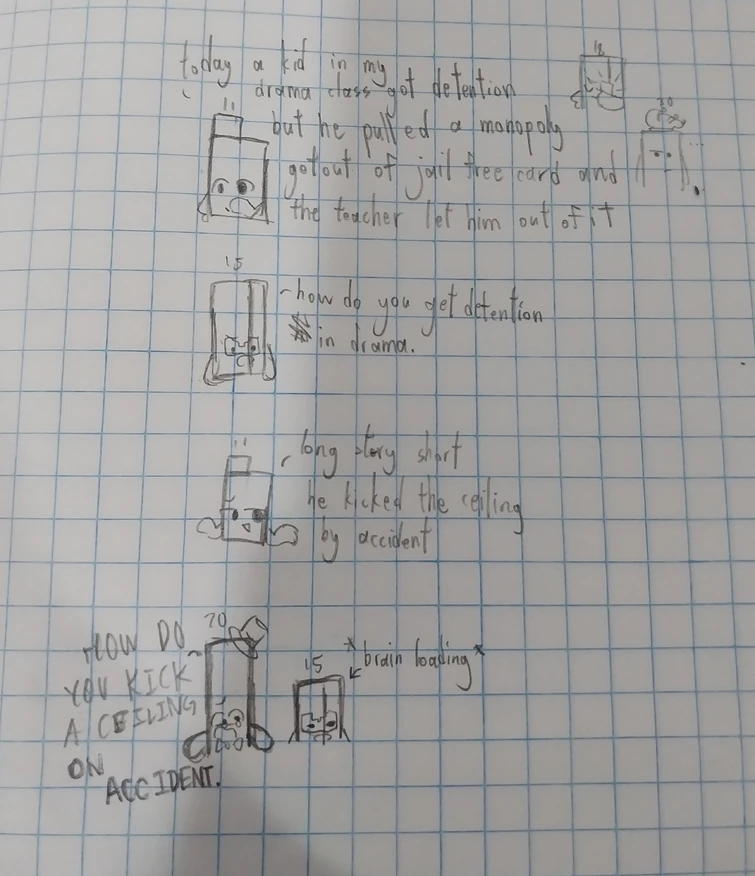 18
today a kid in my
drama class got detention
20
11
but he pulled a monopoly
get out of jail free card and
the teacher let him out of it
15
how do you get detention
in drama.
11
long story short
he kicked the ceiling
by accident
20
HOW DO
YOU KICK
A CEILING
ON
ACCIDENT.
15
*brain loading*